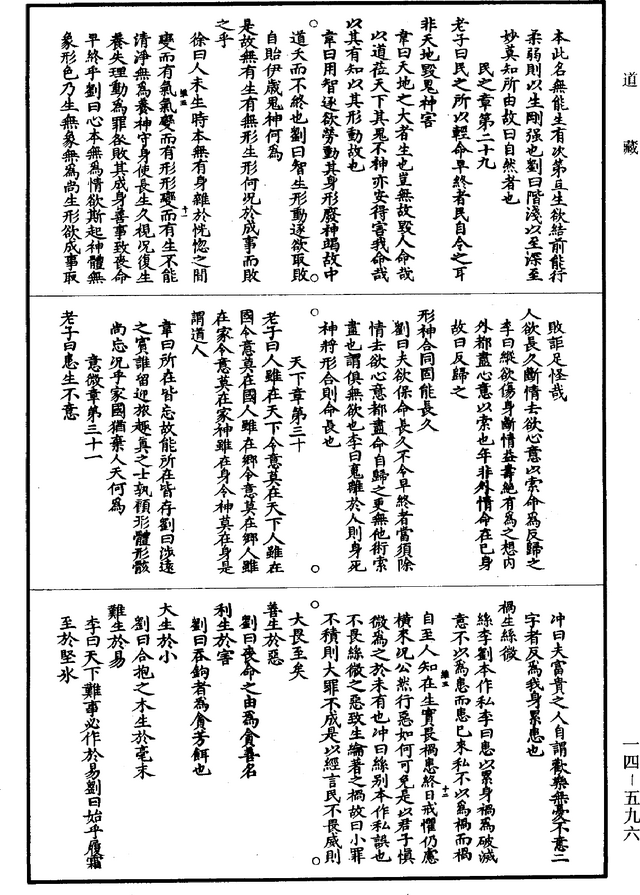 道藏
本此名無能生有次第宜生欲結前能行
柔弱則以生剛强也劉曰階淺以至深至
妙莫知所由故曰自然者也
民之章第二十九
老子曰民之所以輕命早終者民自令之耳
非天地毀鬼神害
韋曰天地之大者生也豈無故毀人命哉
以道莅天下其鬼不神亦安得害我命哉
以其有知以其形動故也
韋曰用智逐欲勞動其身形廢神竭故中
道夭而不終也劉曰智生形動逐欲取敗
自貽伊慼鬼神何爲
是故無有生有無形生形何況於成事而敗
之乎
徐曰人未生時本無有身雜於恍惚之間
變而有氣氣變而有形形變而有生不能
清淨無爲養神守身使長生久視況復生
養失理動爲罪欲敗其成身善事致喪命
早終乎劉曰心本無爲情欲斯起神體無
象形色乃生無象無爲尚生形欲成事取
敗詎足怪哉
人欲長久斷情去欲心意以索命爲反歸之
李曰縱欲傷身斷情益壽絕有爲之想内
外都盡心意以索也年非外情命在己身
故曰反歸之
形神合同固能長久
劉曰夫欲保命長久不令早終者當須除
情去欲心意都盡命自歸之更無他術索
盡也謂俱無欲也李曰鬼離於人則身死
神將形合則命長也
天下章第三十
老子曰人雖在天下令意莫在天下人雖在
國令意莫在國人雖在鄉令意莫在鄉人雖
在家令意莫在家神雖在身令神莫在身是
謂道人
韋曰所在皆忘故能所在皆存劉曰涉遠
之賓誰留迎旅趣真之士孰顧形體形骸
尚忘況乎家國猶棄人天何爲
意微章第三十一
老子曰患生不意
冲曰夫富貴之人自謂歡樂無憂不意二
字者反爲我身累患也
禍生絲微
絲李劉本作私李曰患以累身禍爲破滅
意不以爲患而患已來私不以爲禍而禍
自至人知在生實畏禍患終日戒懼仍慮
橫來況公然行惡如何可免是以君子慎
微爲之於未有也冲曰絲別本作私誤也
不畏絲微之惡致生綸著之禍故曰小罪
不積則大罪不成是以經言民不畏威則
大畏至矣
善生於惡
劉曰喪命之由爲貪善名
利生於害
劉曰吞鉤者爲貪芳餌也
大生於小
劉曰合抱之木生於毫末
難生於易
李曰天下難事必作於易劉曰始乎履霜
至於堅氷
一四－五九六